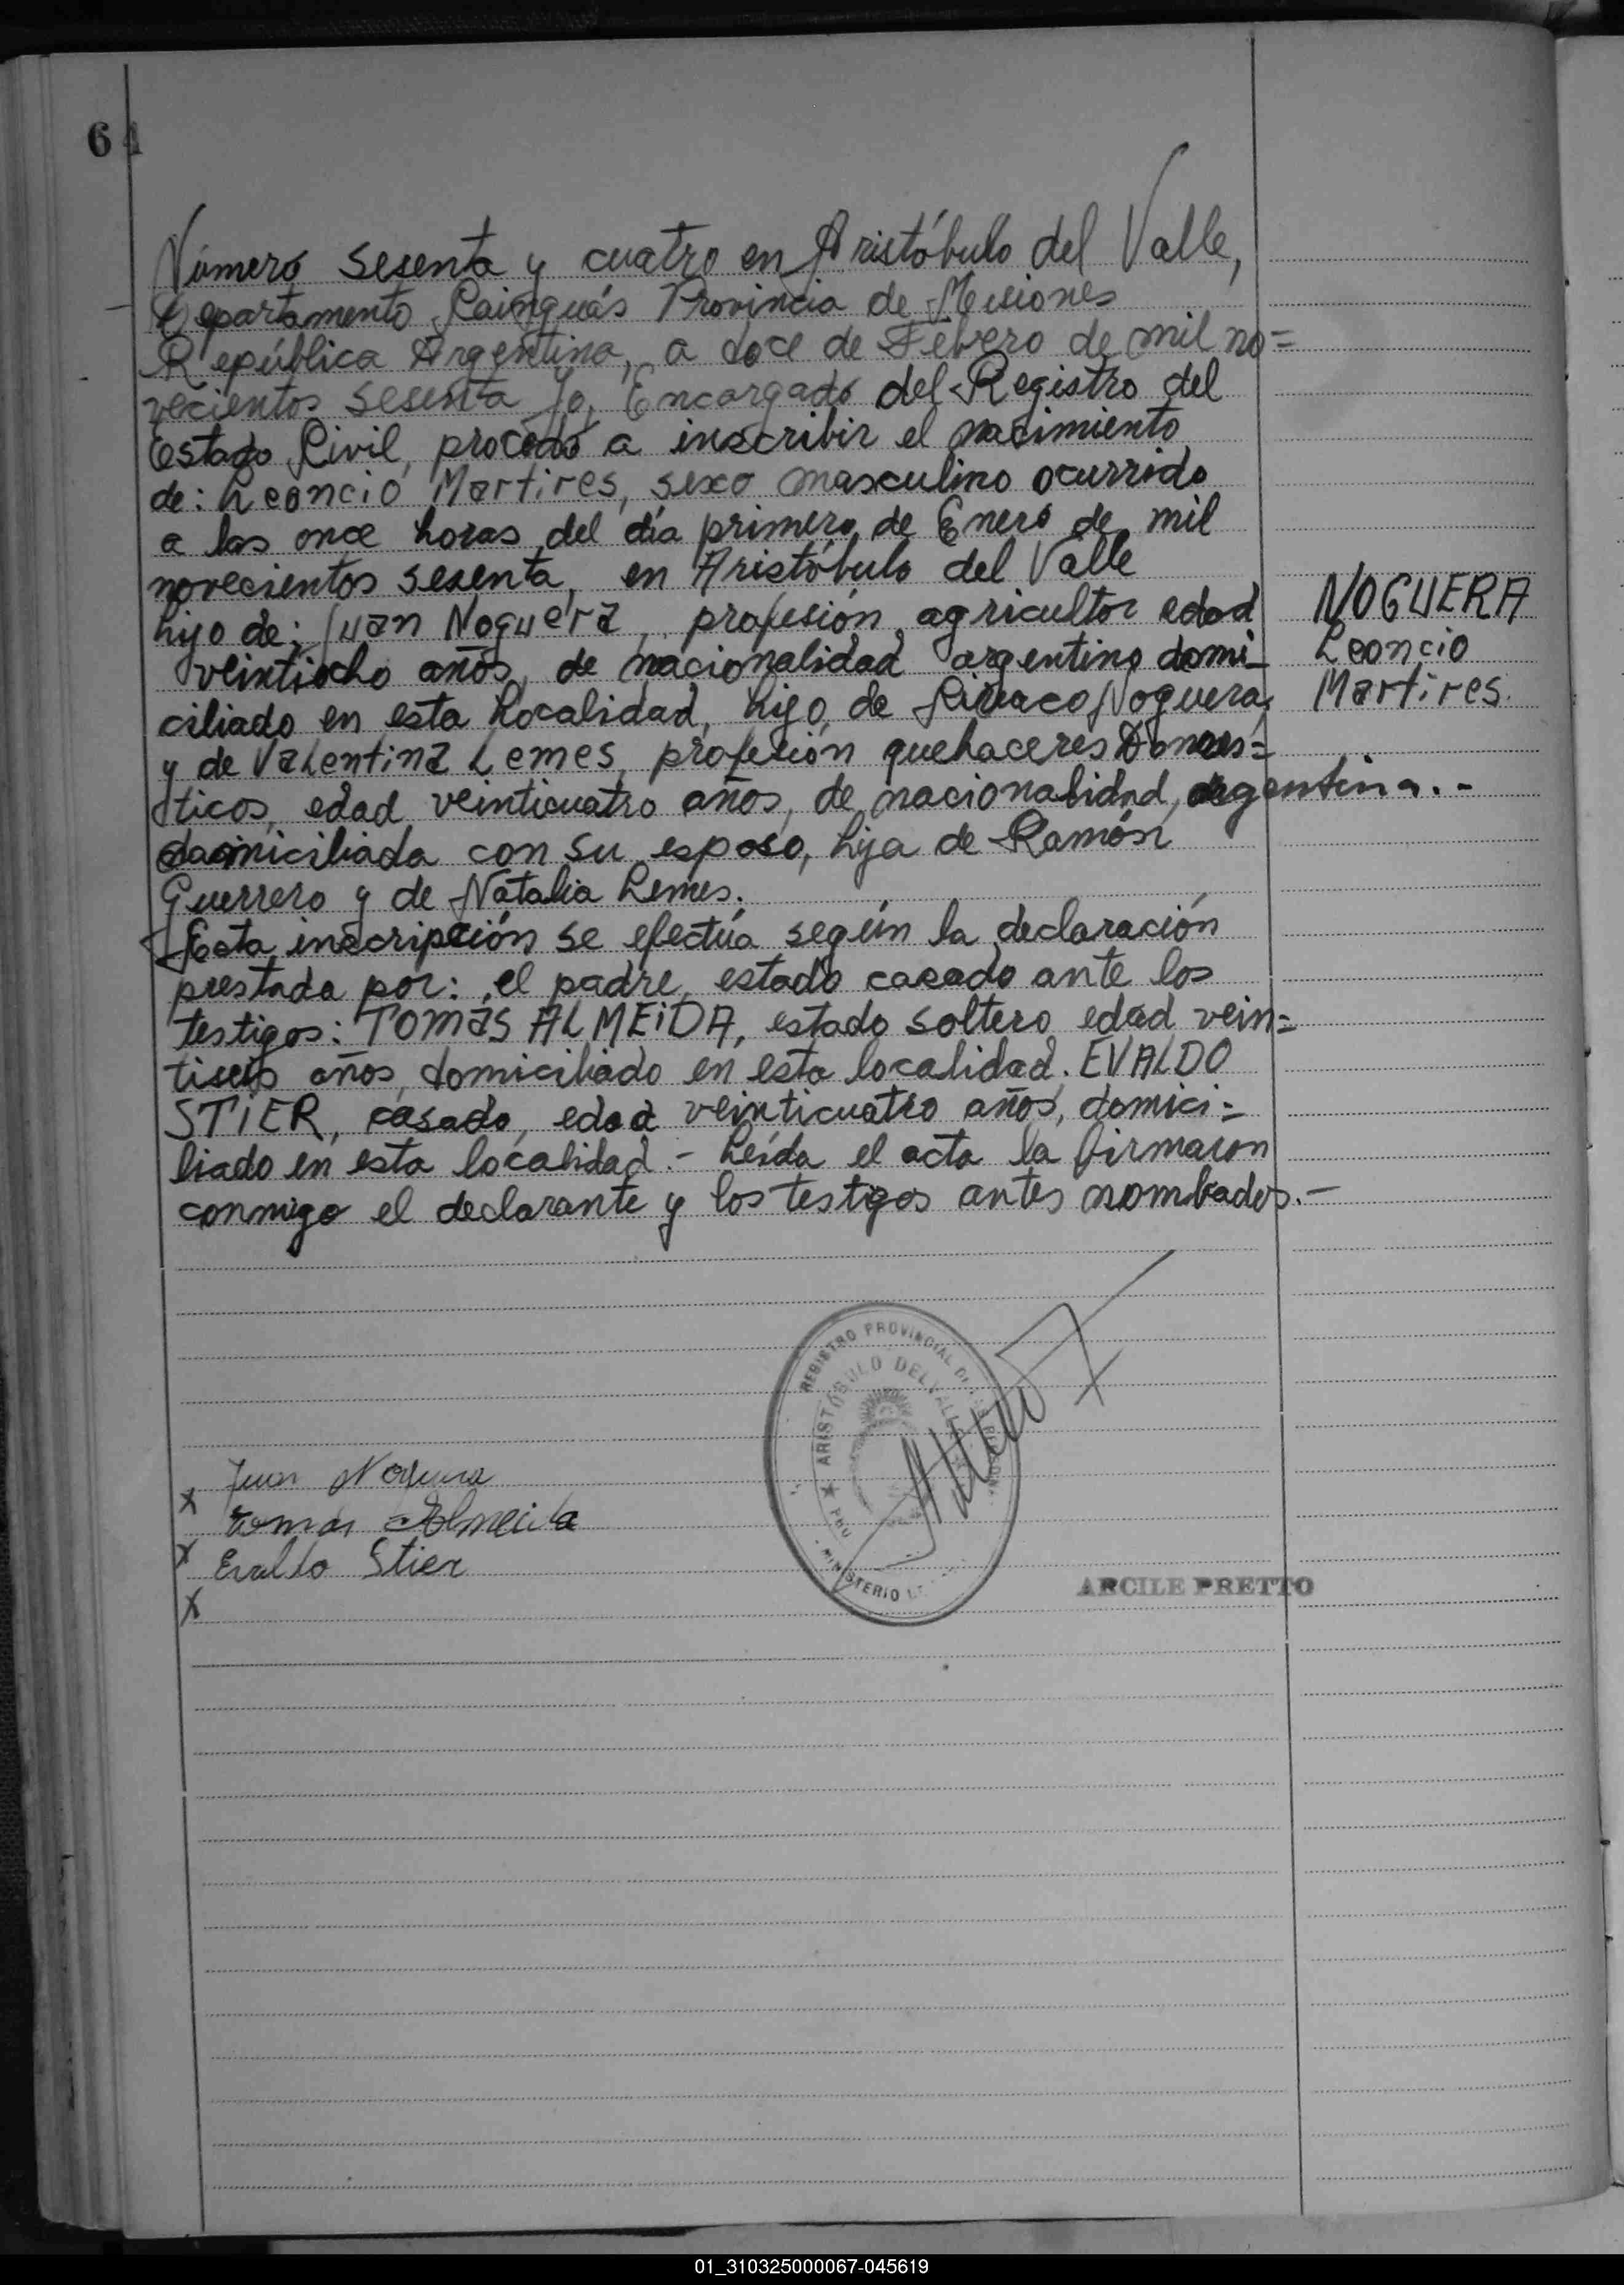 64
Número sesenta y cuatro en Aristóbulo del Valle,
Departamento Cainguás Provincia de Misiones
República Argentina, a doce de Febrero de mil no=
vecientos sesenta Yo, Encargado del Registro del
Estado Civil, procedo a inscribir el nacimiento
de: Leoncio Martires, sexo masculino ocurrido
a las once horas del día primero de Enero de mil
novecientos sesenta, en Aristóbulo del Valle
hijo de: Juan Noguera, profesión agricultor edad
veintiocho años, de nacionalidad argentino domi-
ciliado en esta Localidad, hijo de Ciriaco Noguera,
y de Valentina Lemes, profesión quehaceres Domés=
ticos, edad veinticuatro años, de nacionalidad, argentina.-
domiciliada con su esposo, hija de Ramón
Guerrero y de Natalia Lemes.
Esta inscripción se efectúa según la declaración
prestada por: el padre, estado casado ante los
testigos: TOMAS ALMEIDA, estado soltero edad vein=
tiseis años, domiciliado en esta localidad. EVALDO
STIER, casado, edad veinticuatro años, domici=
liado en esta localidad.- Leída el acta la firmaron
conmigo el declarante y los testigos antes nombados.-
NOGUERA
Leoncio
Martires.
REGISTRO PROVINCIAL DE
ARISTÓBULO DEL VALLE
MINISTERIO
x Juan Noguera
x Tomas Almeida
x Evaldo Stier
ARCILE PRETTO
01_310325000067-045619